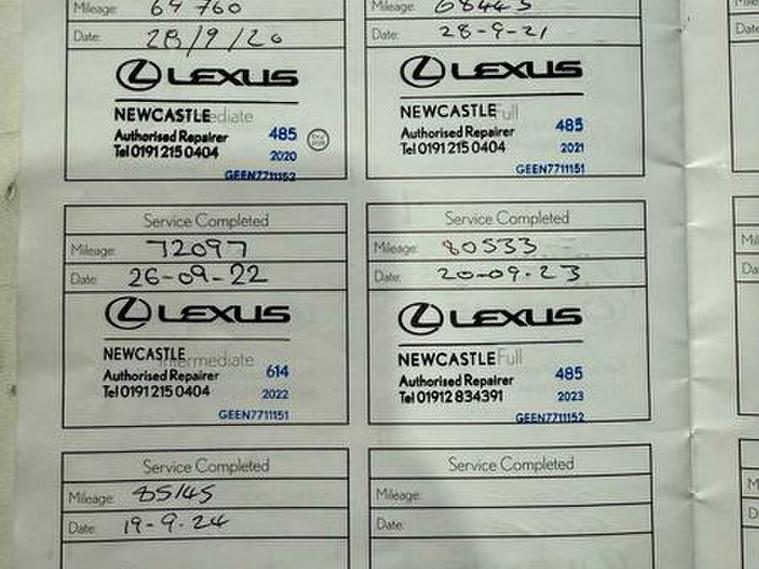 Mileage: 64760
Date: 28/9/20
LEXUS
NEWCASTLE Intermediate
Authorised Repairer 485
Tel 0191 215 0404 2020
GEEN7711152
Mileage: 68445
Date: 28-9-21
LEXUS
NEWCASTLE Full
Authorised Repairer 485
Tel 0191 215 0404 2021
GEEN7711151
Service Completed
Mileage: 72097
Date: 26-09-22
LEXUS
NEWCASTLE Intermediate
Authorised Repairer 614
Tel 0191 215 0404 2022
GEEN7711151
Service Completed
Mileage: 80533
Date: 20-09-23
LEXUS
NEWCASTLE Full
Authorised Repairer 485
Tel 01912 834391 2023
GEEN7711152
Service Completed
Mileage: 85145
Date: 19-9-24
Service Completed
Mileage:
Date: